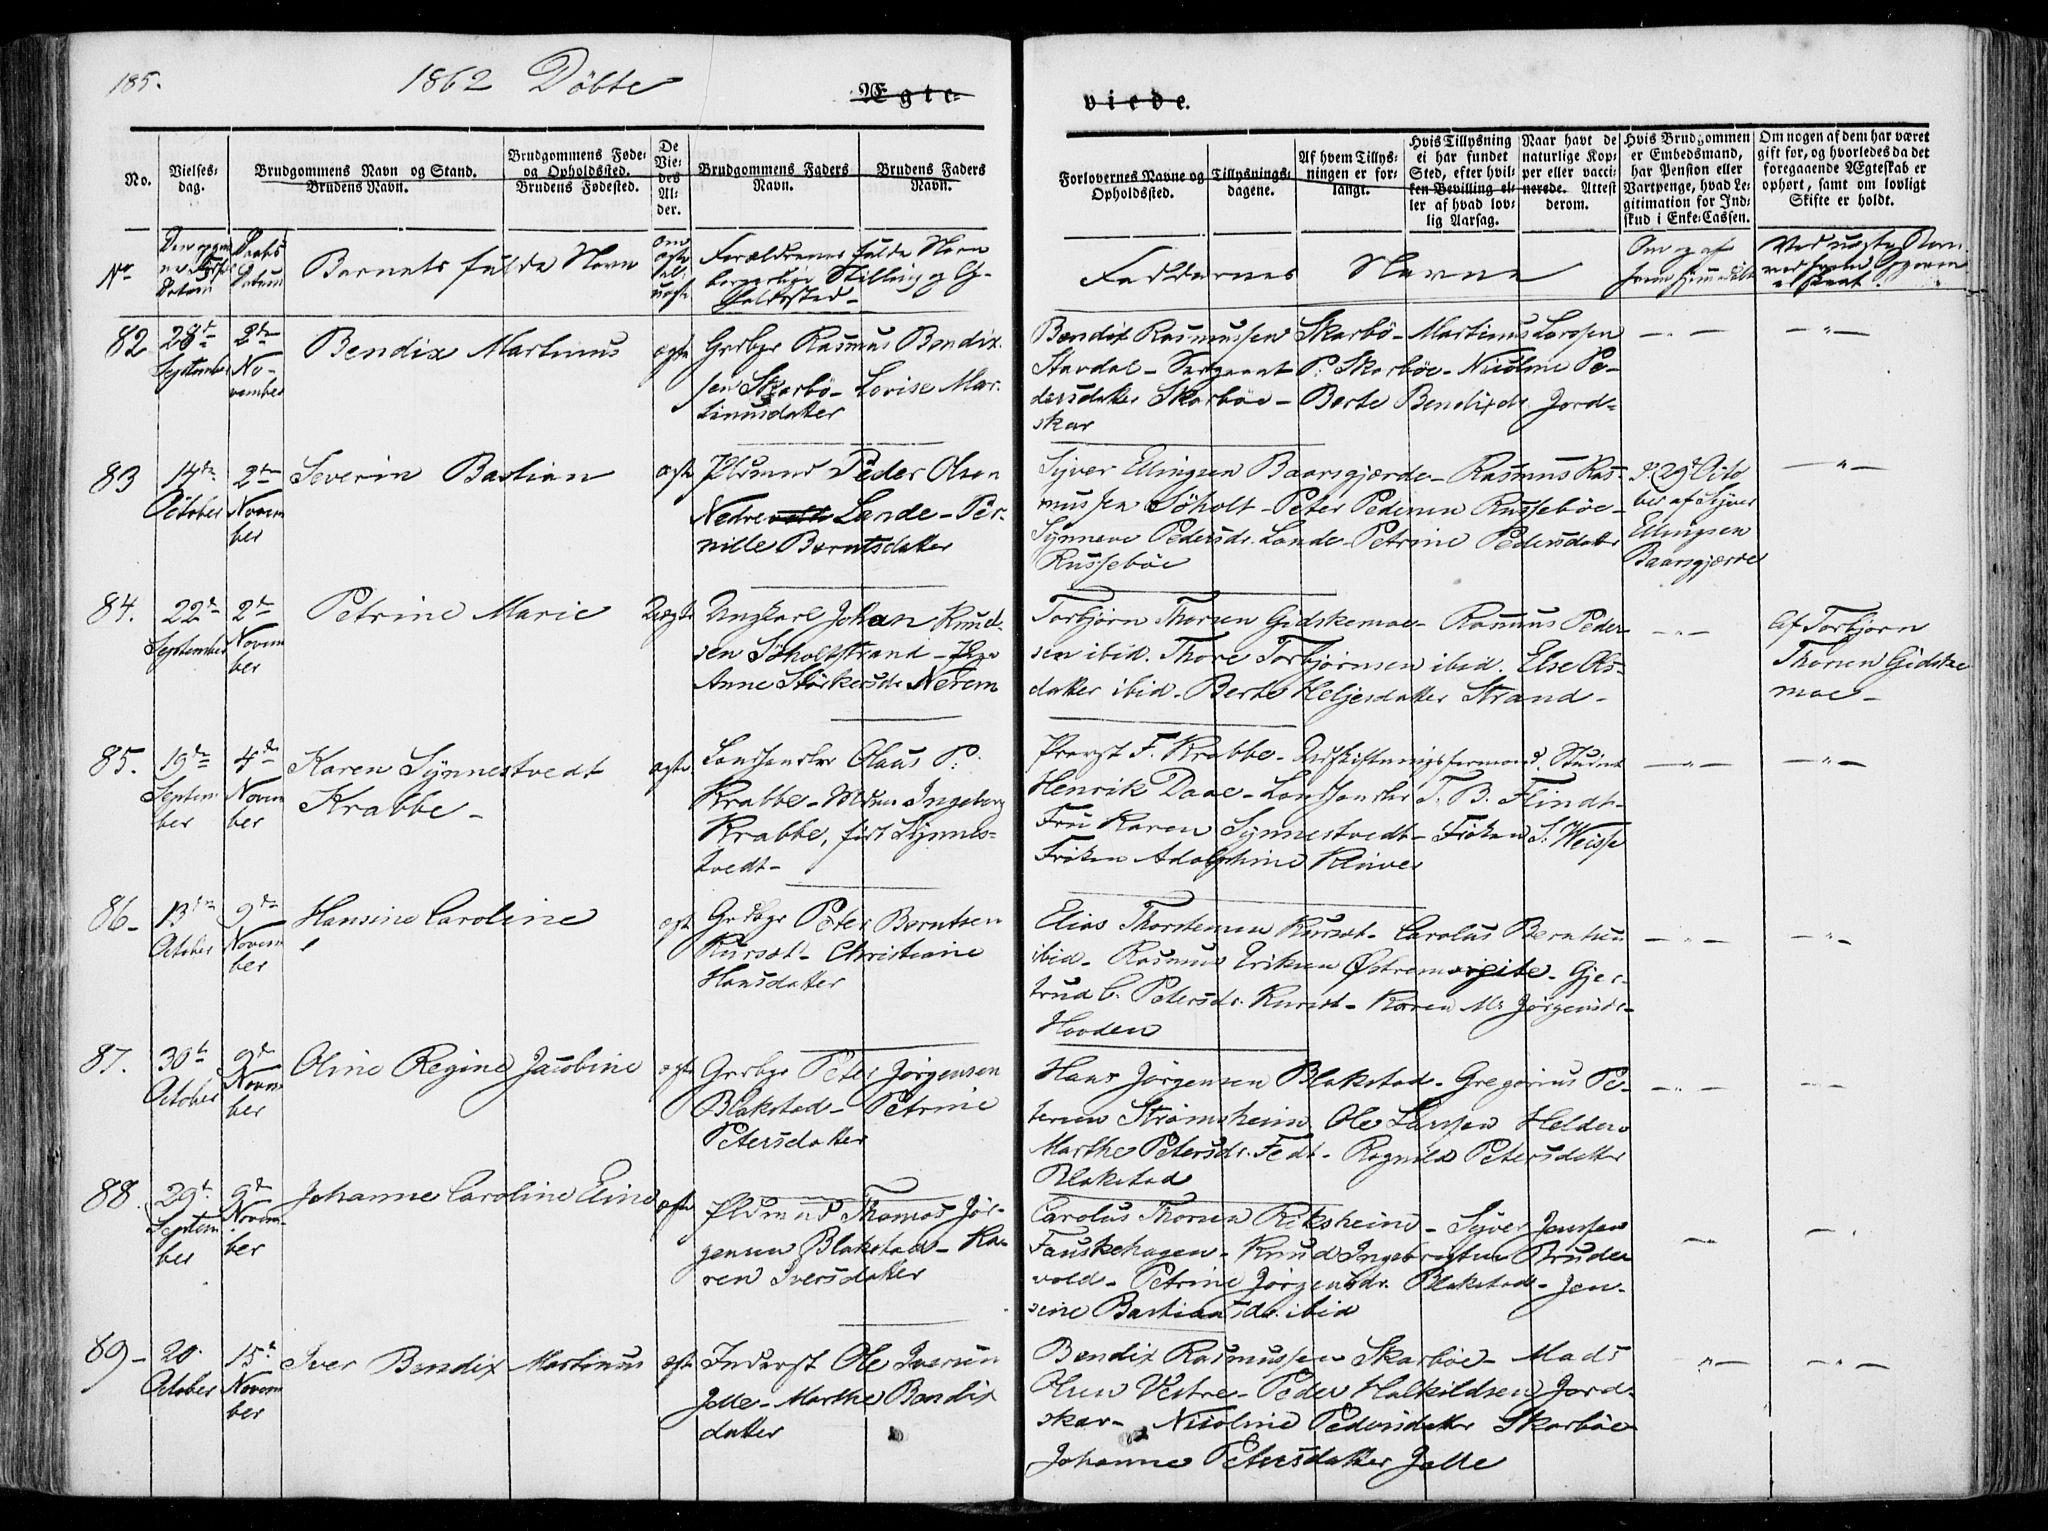 185.
1862 Döbte
Ægte-
viede.
No.
Vielses-
dag.
Brudgommens Navn og Stand.
Brudens Navn.
Brudgommens Føde-
og Opholdssted.
Brudens Fødested.
De
Vie-
des
Al-
der.
Brudgommens Faders
Navn.
Brudens Faders
Navn.
Forlovernes Navne og
Opholdssted.
Tillysnings-
dagene.
Af hvem Tillys-
ningen er for-
langt.
Hvis Tillysning
ei har fundet
Sted, efter hvil-
ken Bevilling el-
ler af hvad lov-
lig Aarsag.
Naar havt de
naturlige Kop-
per eller vacci-
nerede. Attest
derom.
Hvis Brudgommen
er Embedsmand,
har Pension eller
Vartpenge, hvad Le-
gitimation for Ind-
skud i Enke-Cassen.
Om nogen af dem har været
gift før, og hvorledes da det
foregaaende Ægteskab er
ophørt, samt om lovligt
Skifte er holdt.
No
Daabs
Datum
Barnets fulde Navn
Forældrenes fulde Navn
borgerlige Stilling og Op-
holdssted-
Faddernes Navne
Om og af
hvem hjemmedöbt
82
28de
September
2den
No-
vember
Bendix Martinus
ægte
Grdbgr Rasmus Bendix-
sen Skarbö- Lovise Mar-
tinusdatter
Bendix Rasmussen Skarbö- Martinus Larssen
Stavdal- Sergeant P. Skarböe- Nicoline Pe-
dersdatter Skarböe- Berte Bendixdr. Jord-
skar
83
14de
October
2den
Novem
ber
Severin Bastian
ægte
Pldsmand Peder Olsen
Nedre Lande- Per-
nille Berntsdatter
Syver Ellingsen Baarsgjærde- Rasmus Ras-
mussen Söholt- Peter Pedersen Russeböe-
Synneve Pedersdr. Lande- Petrine Pedersdatter
Russeböe
d. 29de Octo
ber af Syver
Ellingsen
Baarsgjærde
84.
22de
September
2den
Novem
ber
Petrine Marie
Uægte
Ungkarl Johan Knud-
sen Söholtstrand- Pige
Anne Störkersdr. Nerem
Torbjørn Thorsen Gidskemoe- Rasmus Peder-
sen ibid. Thore Torbjørnsen ibid. Else Ols-
datter ibid- Berte Heljesdatter Strand-
Af Torbjørn
Thorsen Gidske
moe-
85.
19de
Septem
ber
4de
Novem
ber
Karen Synnestvedt
Krabbe-
ægte
Landhandler Olaus P.
Krabbe- Mdme Ingeborg
Krabbe, født Synnes-
tvedt-
Provst F. Krabbe- Udskiftningsformand, Student
Henrik Daae- Landhandler T. B. Flindt-
Fru Karen Synnestvedt- Frøken S. Weisse
Frøken Adolphine Kluver
86-
13de
October
9de
Novem
ber
Hansine Caroline
ægte
Grdbgr Peter Berntsen
Kursæt- Christiane
Hansdatter
Elias Thorstensen Kursæt- Carolus Berntsen
ibid- Rasmus Eriksen Østrem- Gjer-
trud C. Petersdr. Kursæt- Karen M. Jørgensdr-
Hovden
87.
30te
October
9de
Novem
ber
Oline Regine Jacobine
ægte
Grdbgr Peter Jørgensen
Blakstad- Petrine
Petersdatter
Hans Jørgensen Blakstad- Gregorius Pe-
tersen Strømsheim Ole Larssen Helden
Marthe Petersdr. Fedt- Ragnild Petersdatter
Blakstad
88.
29de
Septem
ber
9de
Novem-
ber
Johanne Caroline Eline
ægte
Pldsmand Thomas Jør-
gensen Blakstad- Ka-
ren Iversdatter
Carolus Thorsen Riksheim- Syver Jenssen
Fauskehagen- Knud Ingebrigtsen Bruder
vold- Petrine Jørgensdr. Blakstad- Jen-
sine Bastiansdr. ibid
89-
20.
October
15de
Novem
ber
Iver Bendix Martinus
ægte
Inderst Ole Iversen
Jelle- Marthe Bendix
datter
Bendix Rasmussen Skarböe- Mads
Olsen Vestre- Peder Halkildsen Jord-
skar- Nicoline Pedersdatter Skarböe
Johanne Petersdatter Jelle